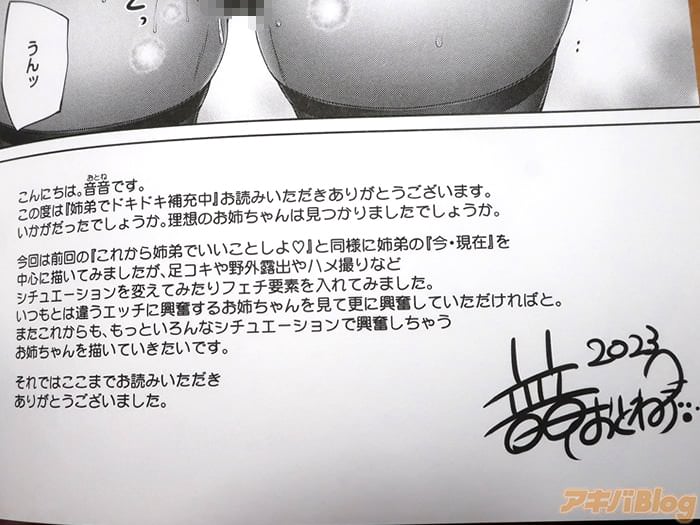 と、
うんッ
こんにちは。音音です。
おとね
この度は『姉弟でドキドキ補充中』お読みいただきありがとうございます。
いかがだったでしょうか。理想のお姉ちゃんは見つかりましたでしょうか。
今回は前回の『これから姉弟でいいことしよ♡』と同様に姉弟の『今・現在』を
中心に描いてみましたが、足コキや野外露出やハメ撮りなど
シチュエーションを変えてみたりフェチ要素を入れてみました。
いつもとは違うエッチに興奮するお姉ちゃんを見て更に興奮していただければと。
またこれからも、もっといろんなシチュエーションで興奮しちゃう
お姉ちゃんを描いていきたいです。
それではここまでお読みいただき
ありがとうございました。
2023
音音
おとね
アキバBlog